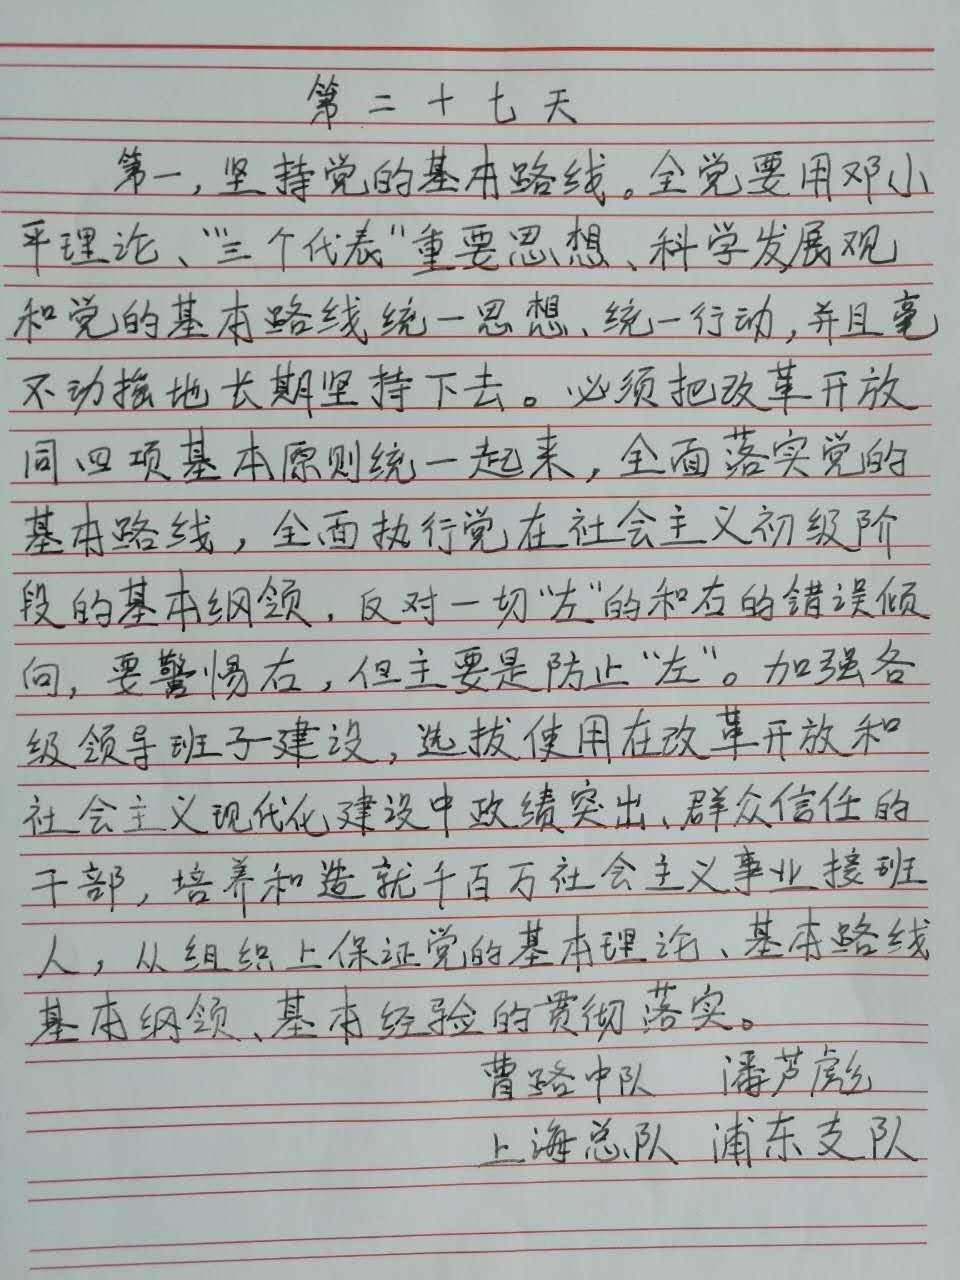 第二十七天
第一,坚持党的基本路线。全党要用邓小
平理论、“三个代表”重要思想、科学发展观
和党的基本路线统一思想、统一行动,并且毫
不动摇地长期坚持下去。必须把改革开放
同四项基本原则统一起来,全面落实党的
基本路线,全面执行党在社会主义初级阶
段的基本纲领,反对一切“左”的和右的错误倾
向,要警惕右,但主要是防止“左”。加强各
级领导班子建设,选拔使用在改革开放和
社会主义现代化建设中政绩突出、群众信任的
干部,培养和造就千百万社会主义事业接班
人,从组织上保证党的基本理论、基本路线
基本纲领、基本经验的贯彻落实。
曹路中队 潘芦彪
上海总队 浦东支队